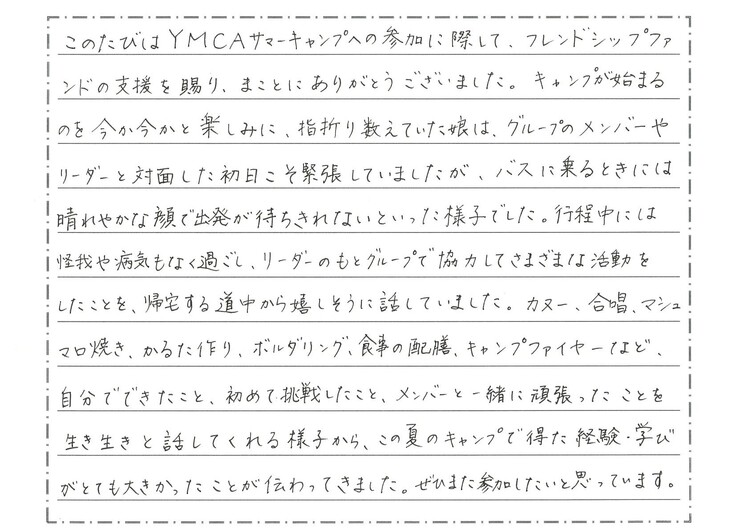 このたびはYMCAサマーキャンプへの参加に際して、フレンドシップファ
ンドの支援を賜り、まことにありがとうございました。キャンプが始まる
のを今か今かと楽しみに、指折り数えていた娘は、グループのメンバーや
リーダーと対面した初日こそ緊張していましたが、バスに乗るときには
晴れやかな顔で出発が待ちきれないといった様子でした。行程中には
怪我や病気もなく過ごし、リーダーのもとグループで協力してさまざまな活動を
したことを、帰宅する道中から嬉しそうに話していました。カヌー、合唱、マシュ
マロ焼き、かるた作り、ボルダリング、食事の配膳、キャンプファイヤーなど、
自分でできたこと、初めて挑戦したこと、メンバーと一緒に頑張ったことを
生き生きと話してくれる様子から、この夏のキャンプで得た経験・学び
がとても大きかったことが伝わってきました。ぜひまた参加したいと思っています。